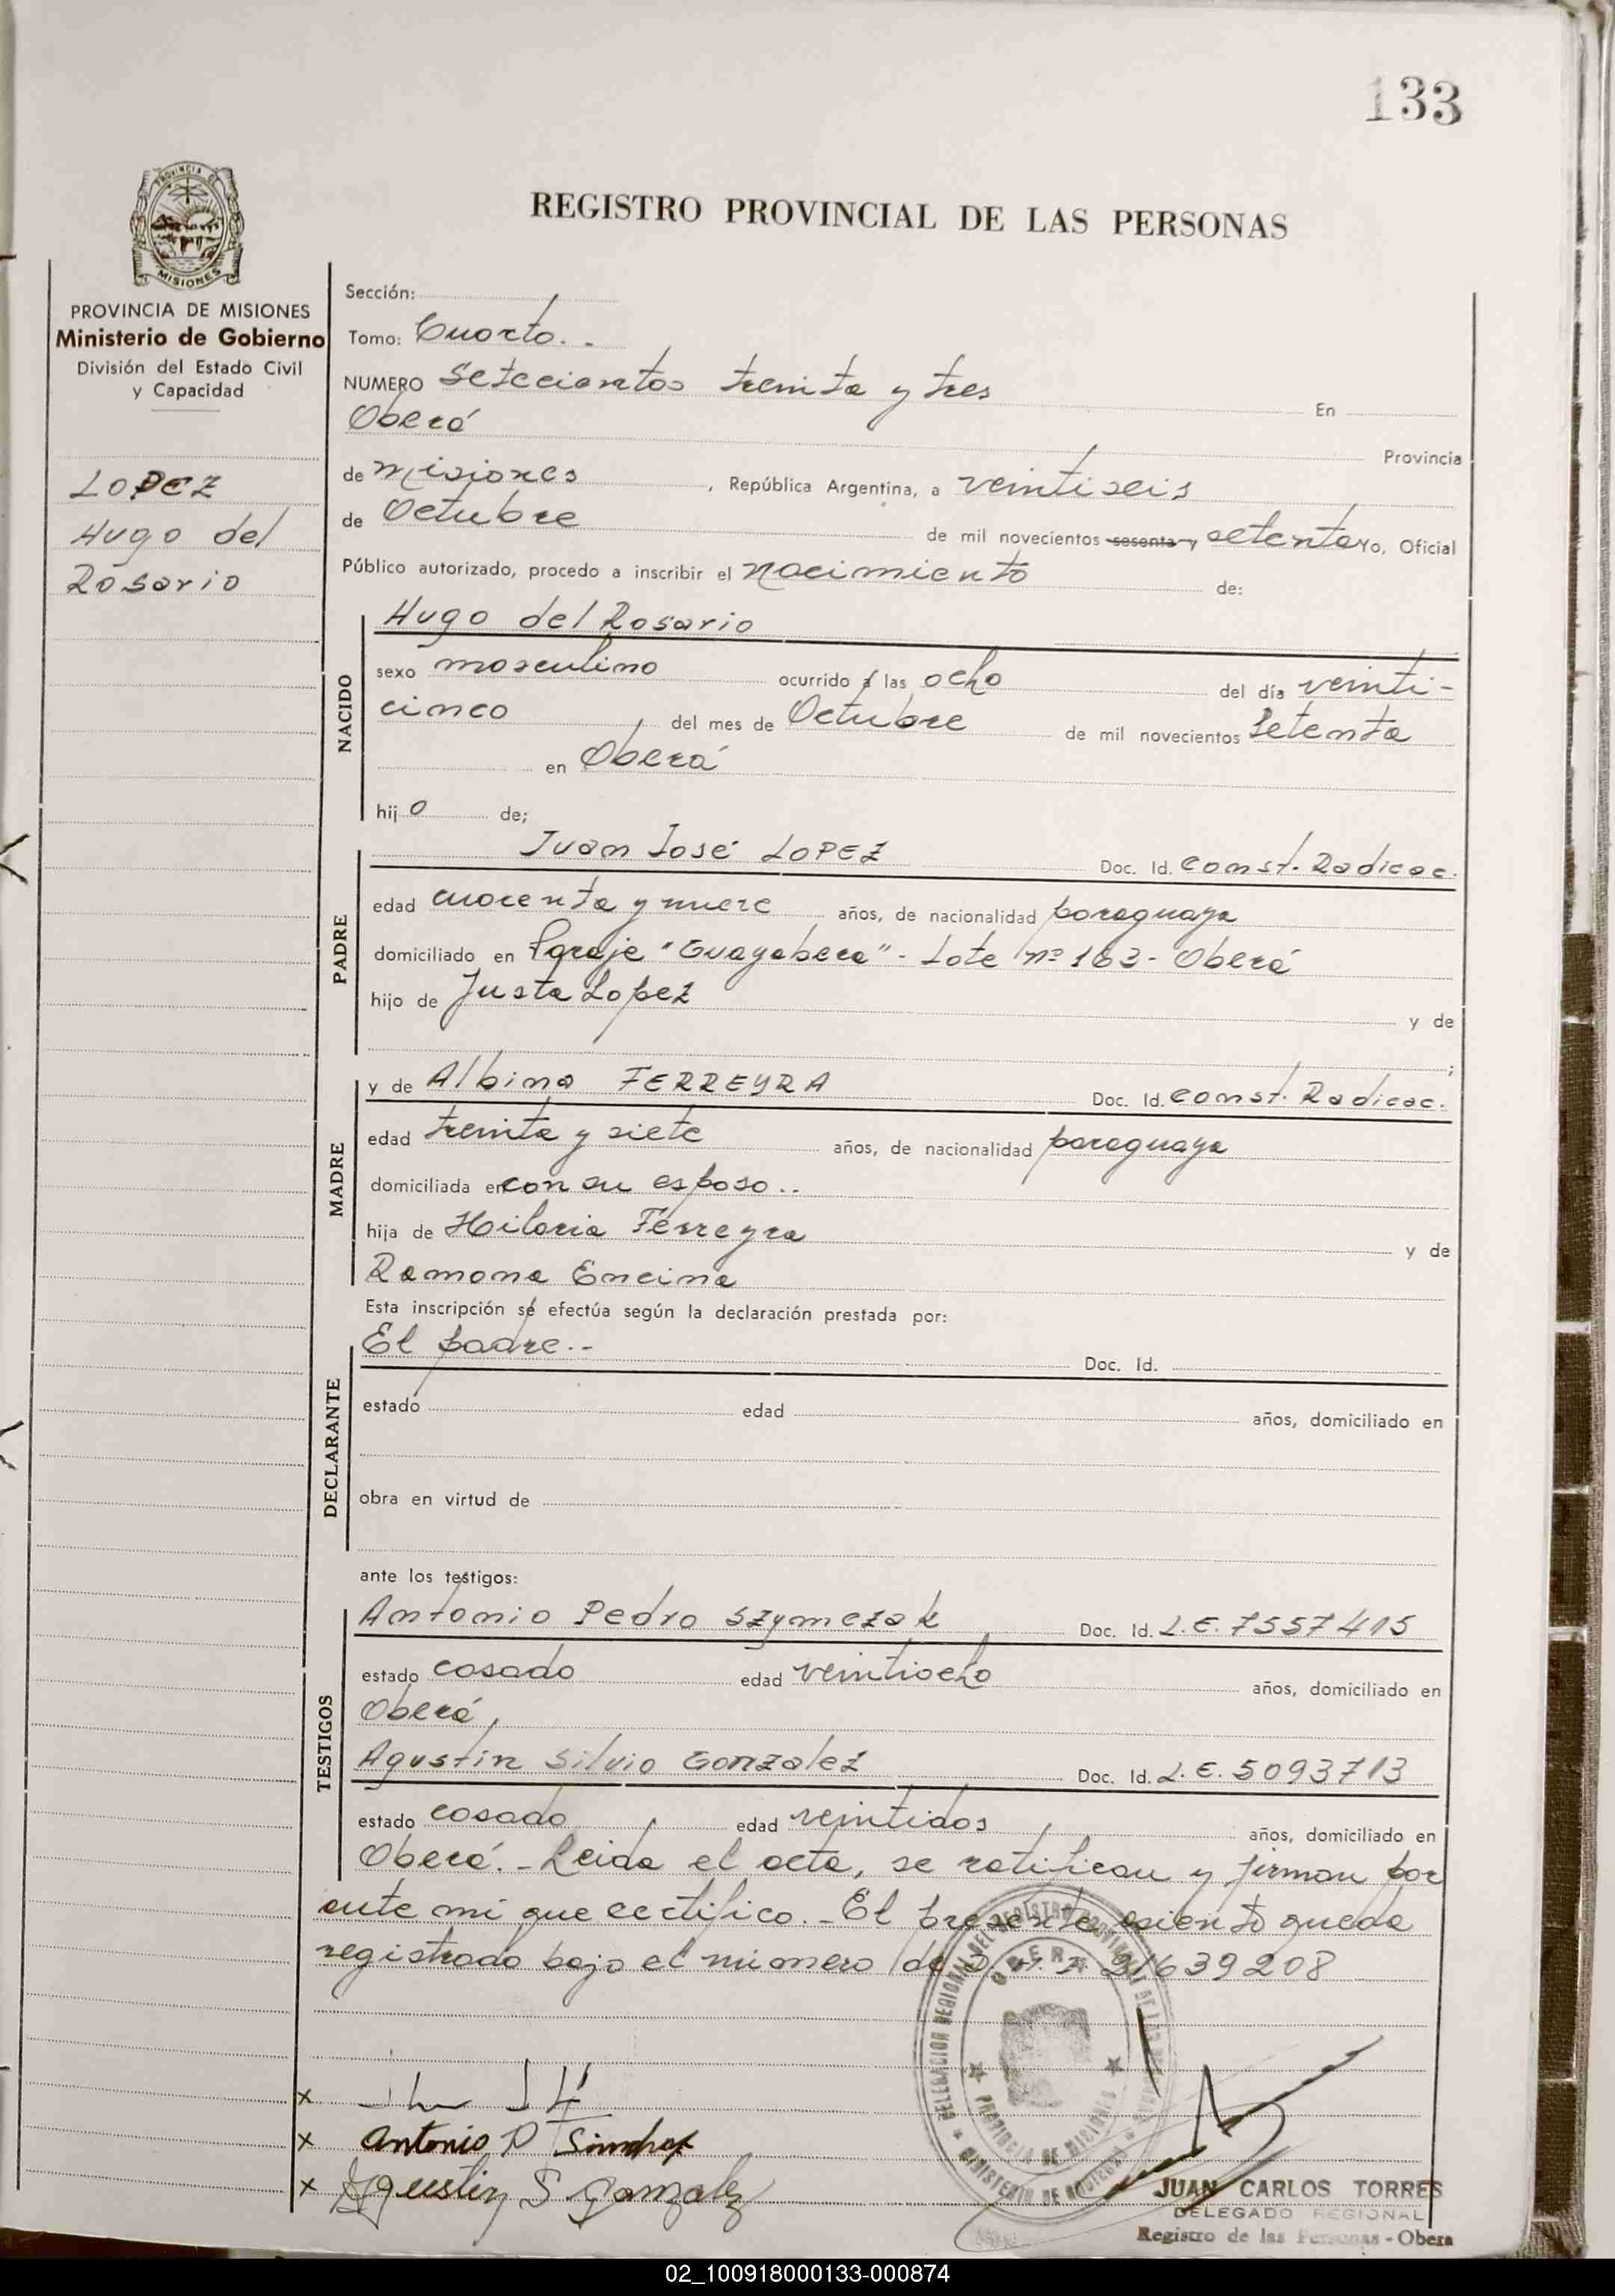 133
REGISTRO PROVINCIAL DE LAS PERSONAS
PROVINCIA DE MISIONES
PROVINCIA DE MISIONES
Ministerio de Gobierno
División del Estado Civil
y Capacidad
LOPEZ
Hugo del
Rosario
Sección:
Tomo: Cuarto. -
NUMERO Setecientos treinta y tres En
Oberá Provincia
de Misiones, República Argentina, a veintiseis
de Octubre de mil novecientos sesenta y setenta yo, Oficial
Público autorizado, procedo a inscribir el nacimiento de:
NACIDO
Hugo del Rosario
sexo masculino ocurrido a las ocho del día veinti-
cinco, del mes de Octubre de mil novecientos Setenta
en Oberá
hijo de;
PADRE
Juan José LOPEZ Doc. Id. Const. Radicac.
edad cuarenta y nueve años, de nacionalidad paraguaya
domiciliado en Paraje "Guayabera" - Lote nº 163 - Oberá
hijo de Justa Lopez y de
;
MADRE
y de Albina FERREYRA Doc. Id. Const. Radicac.
edad treinta y siete años, de nacionalidad paraguaya
domiciliada en con su esposo..
hija de Hilaria Ferreyra y de
Ramona Encina
Esta inscripción se efectúa según la declaración prestada por:
DECLARANTE
El padre.- Doc. Id.
estado edad años, domiciliado en
obra en virtud de
ante los testigos:
TESTIGOS
Antonio Pedro Szymczak Doc. Id. L.E. 7557415
estado casado edad veintiocho años, domiciliado en
Oberá,
Agustín Silvio Gonzalez Doc. Id. L.E. 5093713
estado casado, edad veintidos, años, domiciliado en
Oberá.- Leida el acta, se ratifican y firman por
ante mi que certifico.- El presente asiento queda
registrado bajo el número de D.N.I. 21639208
x
x Antonio P
x Agustin S Gonzalez
DELEGACION REGIONAL DEL REGISTRO PROVINCIAL DE LAS PERSONAS
OBERA
PROVINCIA DE MISIONES
MINISTERIO DE GOBIERNO
JUAN CARLOS TORRES
DELEGADO REGIONAL
Registro de las Personas - Obera
02_100918000133-000874